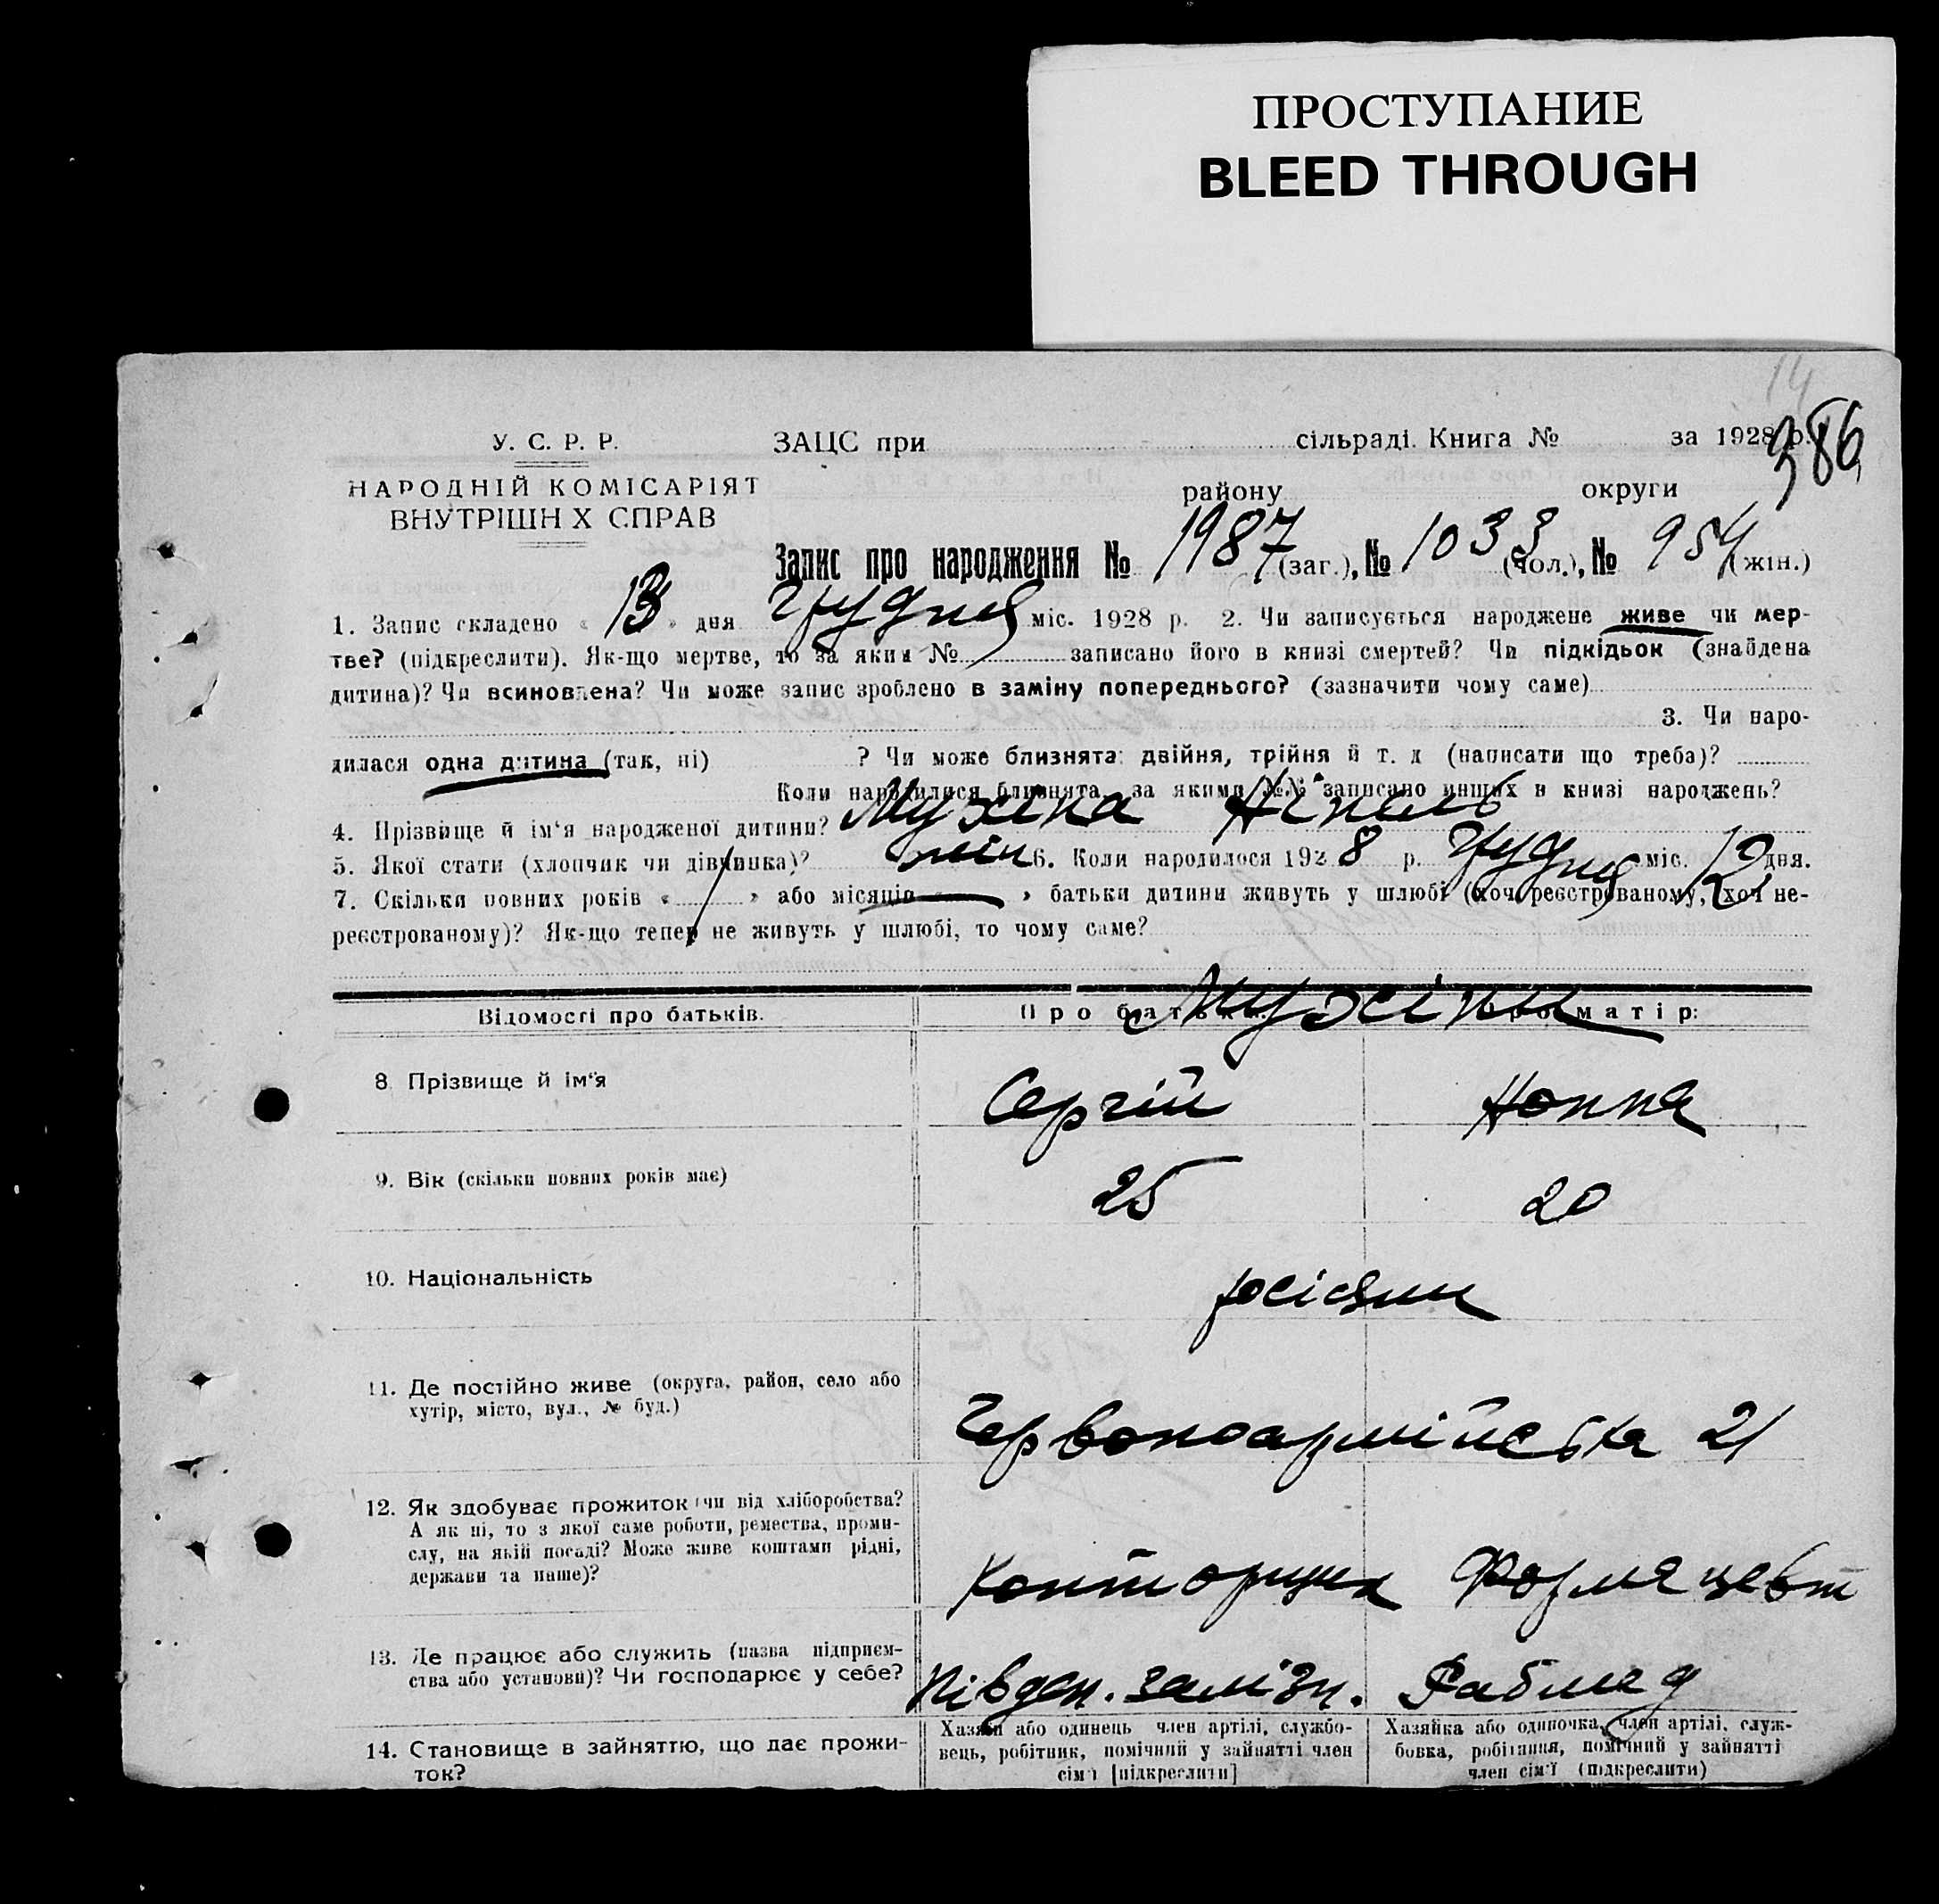 ПРОСТУПАНИЕ
BLEED THROUGH
14
386
У. С. Р. Р.
НАРОДНІЙ КОМІСАРІЯТ
ВНУТРІШН Х СПРАВ
ЗАЦС при сільраді. Книга № за 1928 р.
району округи
Запис про народження № 1987 (заг.), № 1033 (чол.), № 954 (жін.)
1. Запис складено « 13 » дня грудня міс. 1928 р. 2. Чи записується народжене живе чи мер-
тве? (підкреслити). Як-що мертве, то за яким № записано його в книзі смертей? Чи підкідьок (знайдена
дитина)? Чи всиновлена? Чи може запис зроблено в заміну попереднього? (зазначити чому саме)
3. Чи наро-
дилася одна дитина (так, ні) ? Чи може близнята: двійня, трійня й т. д (написати що треба)?
Коли народилися близнята, за якими №№ записано инших в книзі народжень?
4. Прізвище й ім'я народженої дитини? Мухіна Нінель
5. Якої стати (хлопчик чи дівчинка)? жін 6. Коли народилося 1928 р. грудня міс. 12 дня.
7. Скільки повних років « 1 » або місяців « — » батьки дитини живуть у шлюбі (хоч реєстрованому, хоч не-
реєстрованому)? Як-що тепер не живуть у шлюбі, то чому саме?
Відомості про батьків. Про батька: Про матір:
Мухіни
8. Прізвище й ім'я Сергій Нонна
9. Вік (скільки повних років має) 25 20
10. Національність росіяни
11. Де постійно живе (округа, район, село або
хутір, місто, вул., № буд.)
Червоноармійська 21
12. Як здобуває прожиток (чи від хліборобства?
А як ні, то з якої саме роботи, ремества, проми-
слу, на якій посаді? Може живе коштами рідні,
держави та инше)?
Конторщик Формацевт
13. Де працює або служить (назва підприєм-
ства або установи)? Чи господарює у себе?
Півден. залізн. Рабмед
14. Становище в зайняттю, що дає прожи-
ток?
Хазяїн або одинець член артілі, службо-
вець, робітник, помічний у зайнятті член
сім'ї [підкреслити]
Хазяйка або одиночка, член артілі, служ-
бовка, робітниця, помічний у зайнятті
член сім'ї (підкреслити)